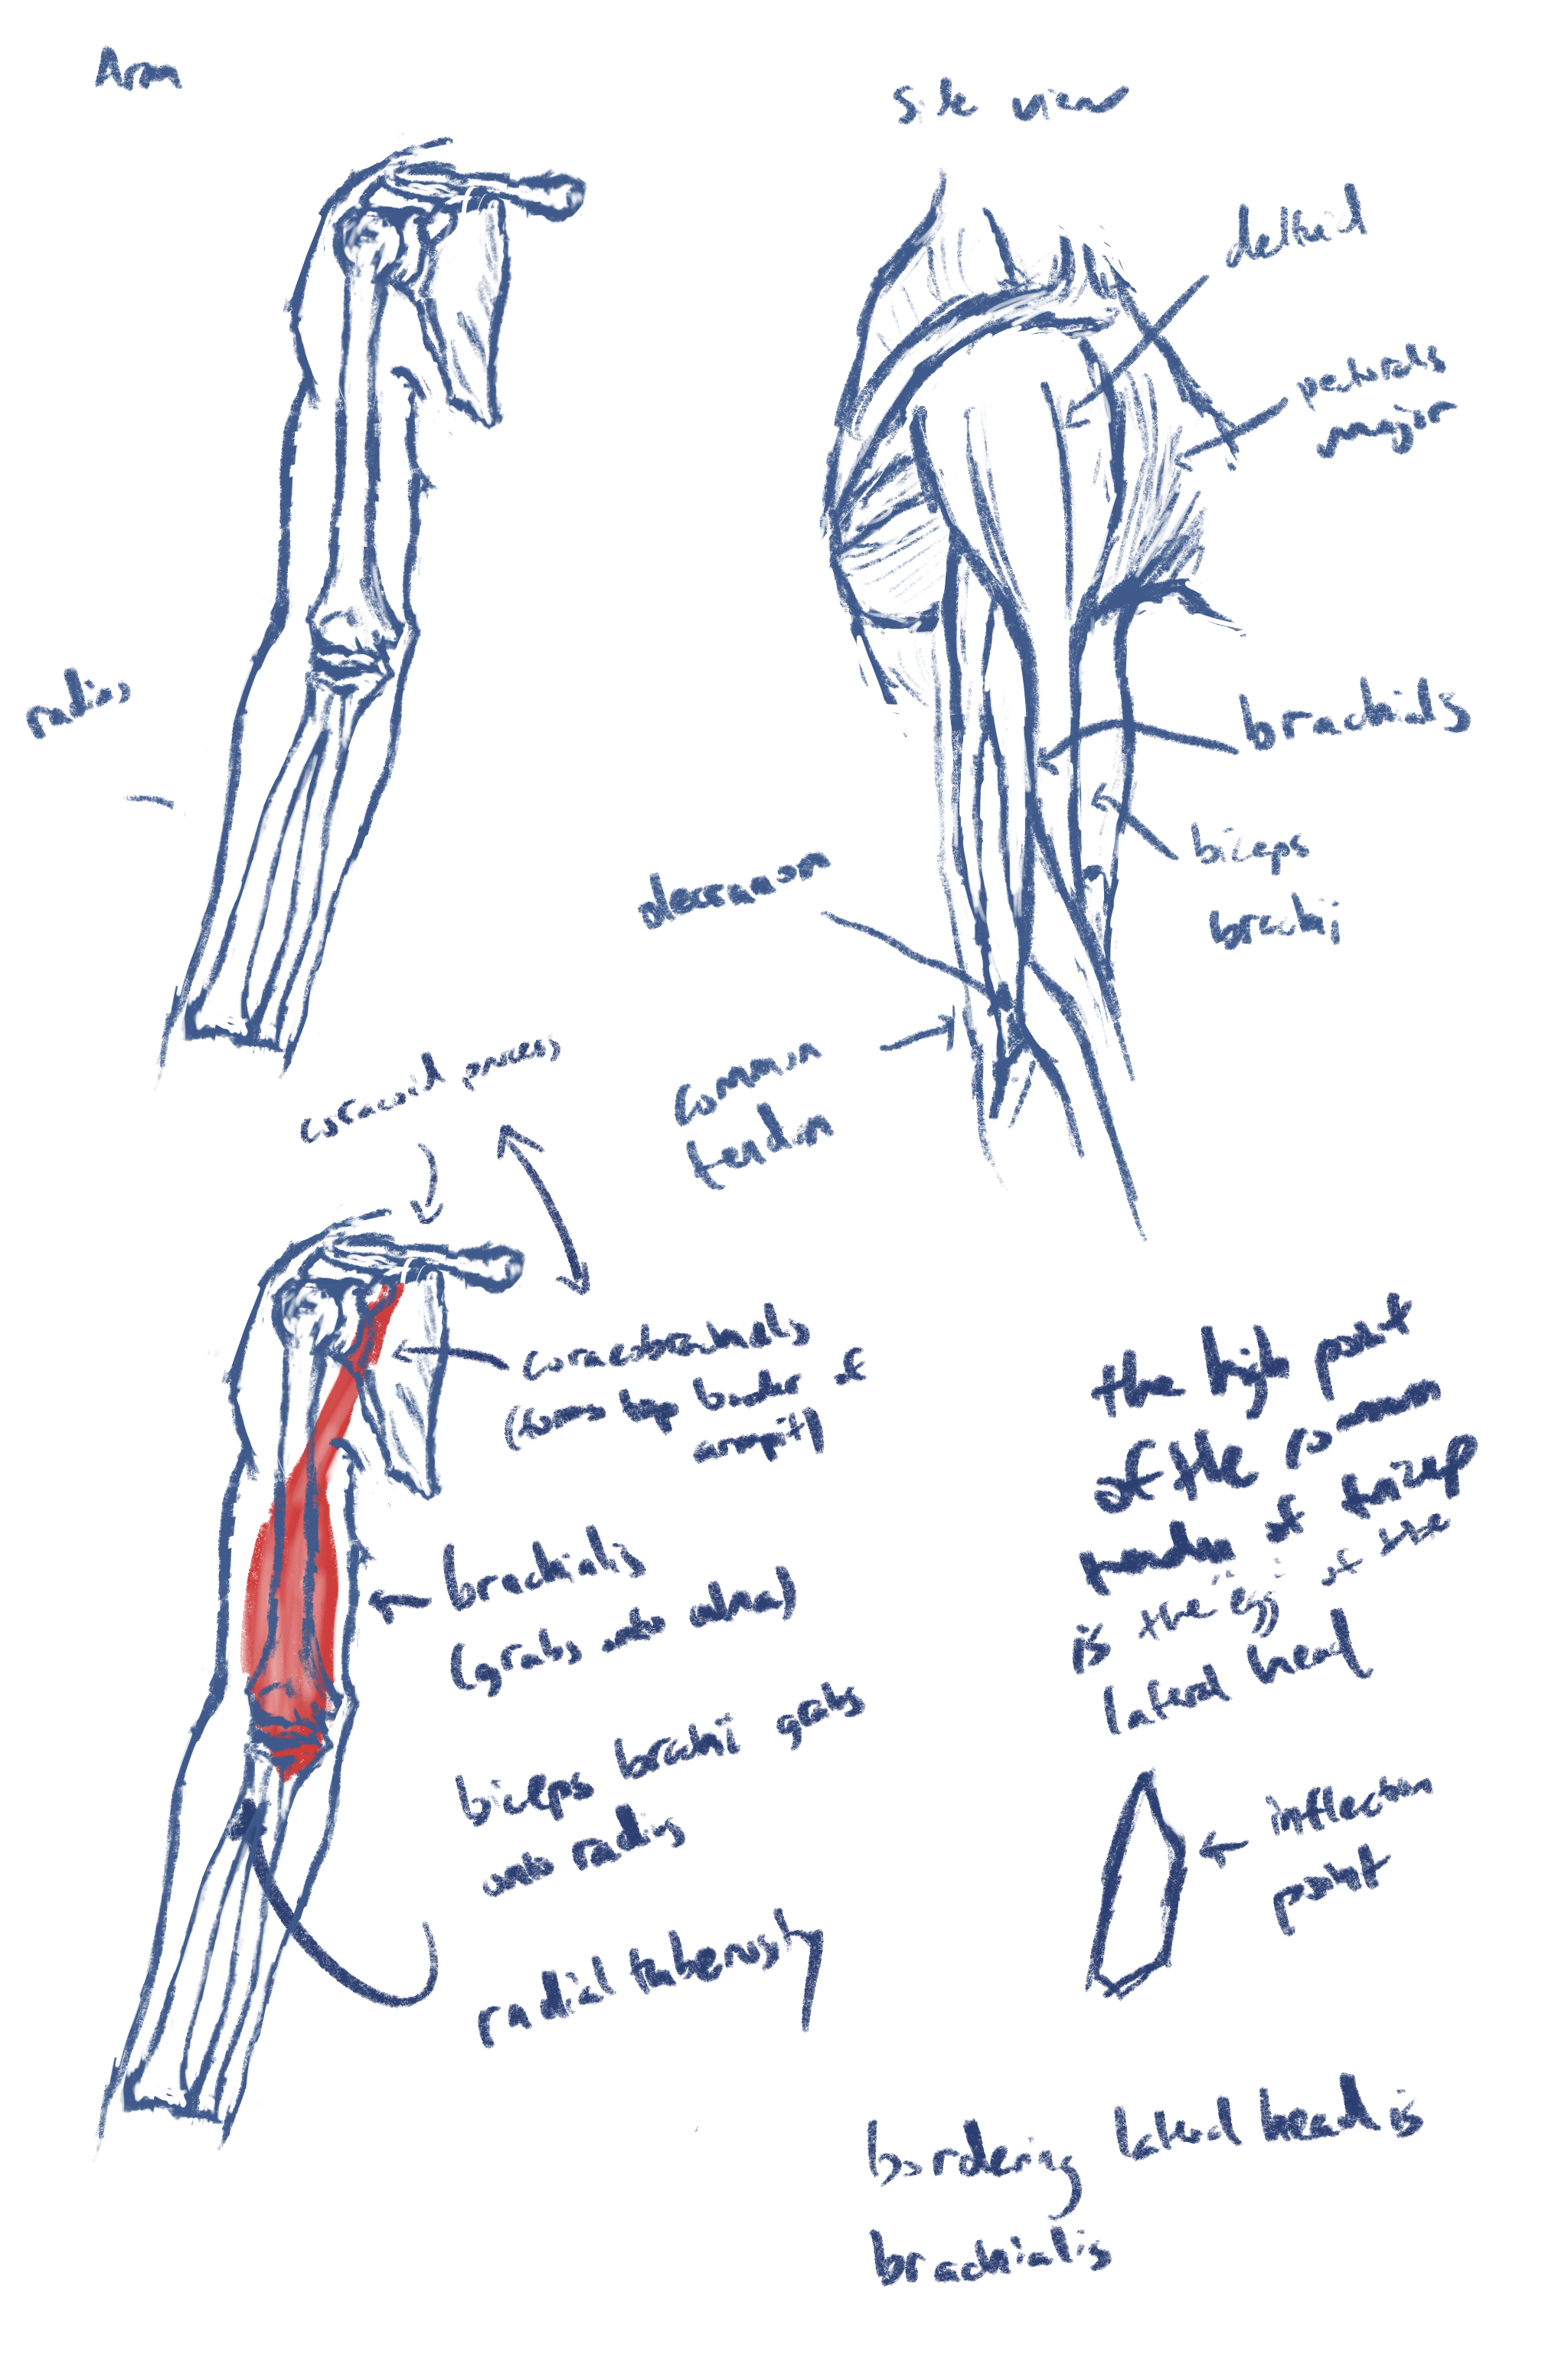 Arm
side view
deltoid
pectoralis
major
radius
brachialis
biceps
brachii
olecranon
common
tendon
coracoid process
coracobrachialis
(forms top border of
armpit)
brachialis
(grabs onto ulna)
biceps brachii grabs
onto radius
radial tuberosity
the high point
of the common
tendon of tricep
is the egg of the
lateral head
inflection
point
bordering lateral head is
brachialis